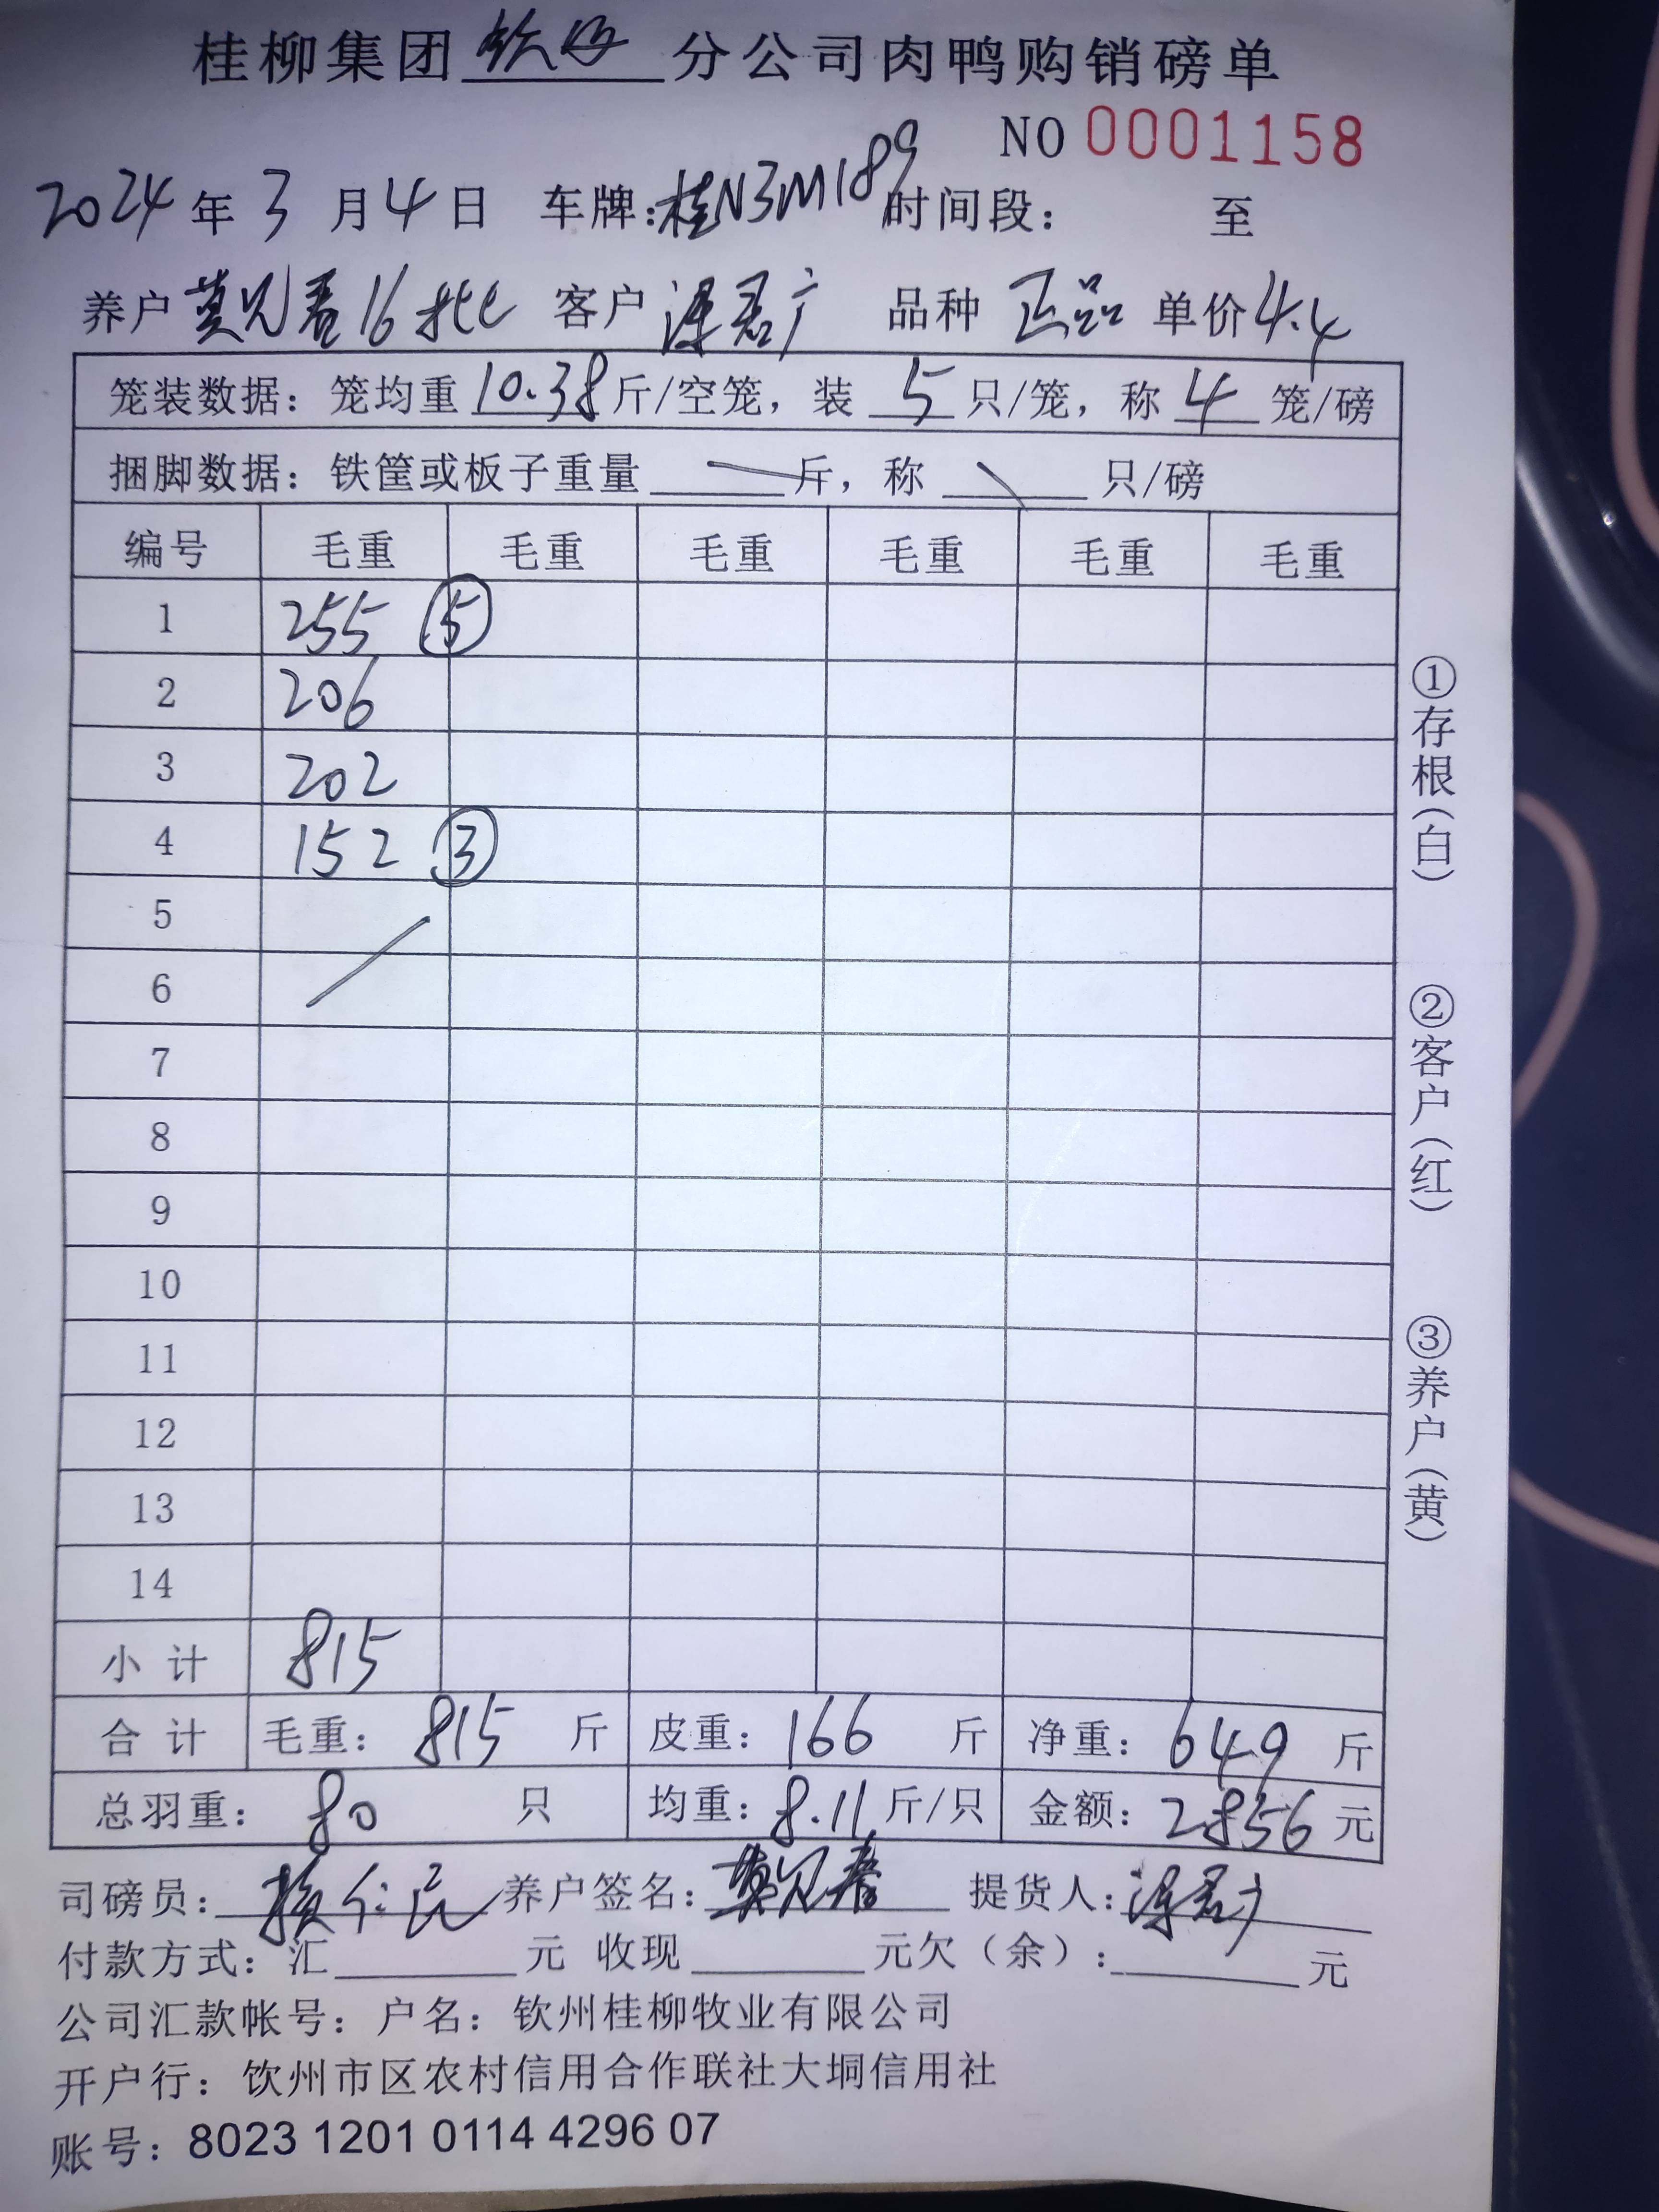 桂柳集团钦州分公司肉鸭购销磅单
NO 0001158
2024年3月4日 车牌:桂N3M189 时间段: 至
养户 莫兄春16批 客户 君广 品种 正品 单价4.4
笼装数据: 笼均重10.38斤/空笼, 装5只/笼, 称4笼/磅
捆脚数据: 铁筐或板子重量 斤, 称 只/磅
编号 毛重 毛重 毛重 毛重 毛重 毛重
1 255 ⑤
2 206
3 202
4 152 ③
5
6
7
8
9
10
11
12
13
14
小计 815
合计 毛重: 815 斤 皮重: 166 斤 净重: 649 斤
总羽重: 80 只 均重: 8.11 斤/只 金额: 2856 元
司磅员: 仁民 养户签名: 莫兄春 提货人: 君广
付款方式: 汇 元 收现 元欠(余): 元
公司汇款帐号: 户名: 钦州桂柳牧业有限公司
开户行: 饮州市区农村信用合作联社大垌信用社
账号: 8023 1201 0114 4296 07
①存根(白)
②客户(红)
③养户(黄)